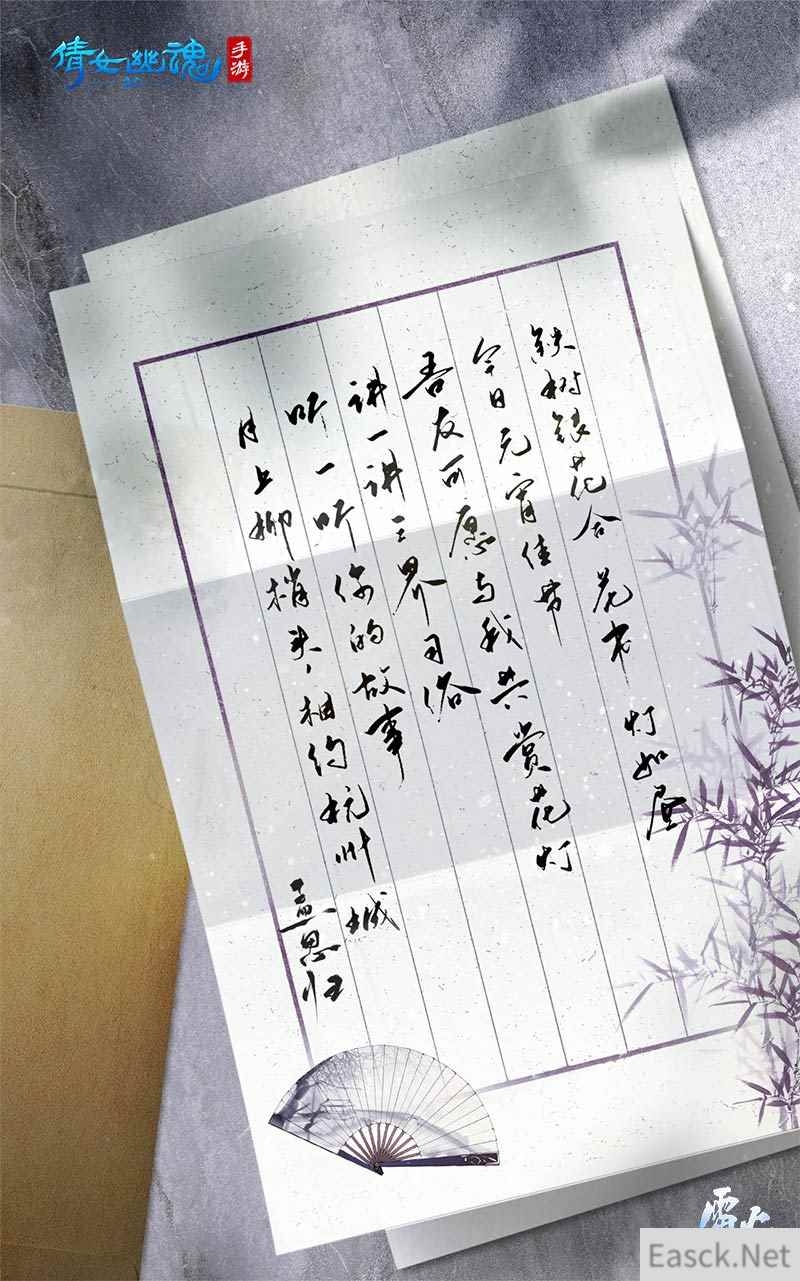 倩女幽魂
手游
铁树银花合 花市灯如昼
今日元宵佳节
吾友可愿与我共赏花灯
讲一讲三界习俗
听一听你的故事
月上柳梢头,相约杭州城
孟思归
雷火
Easck.Net